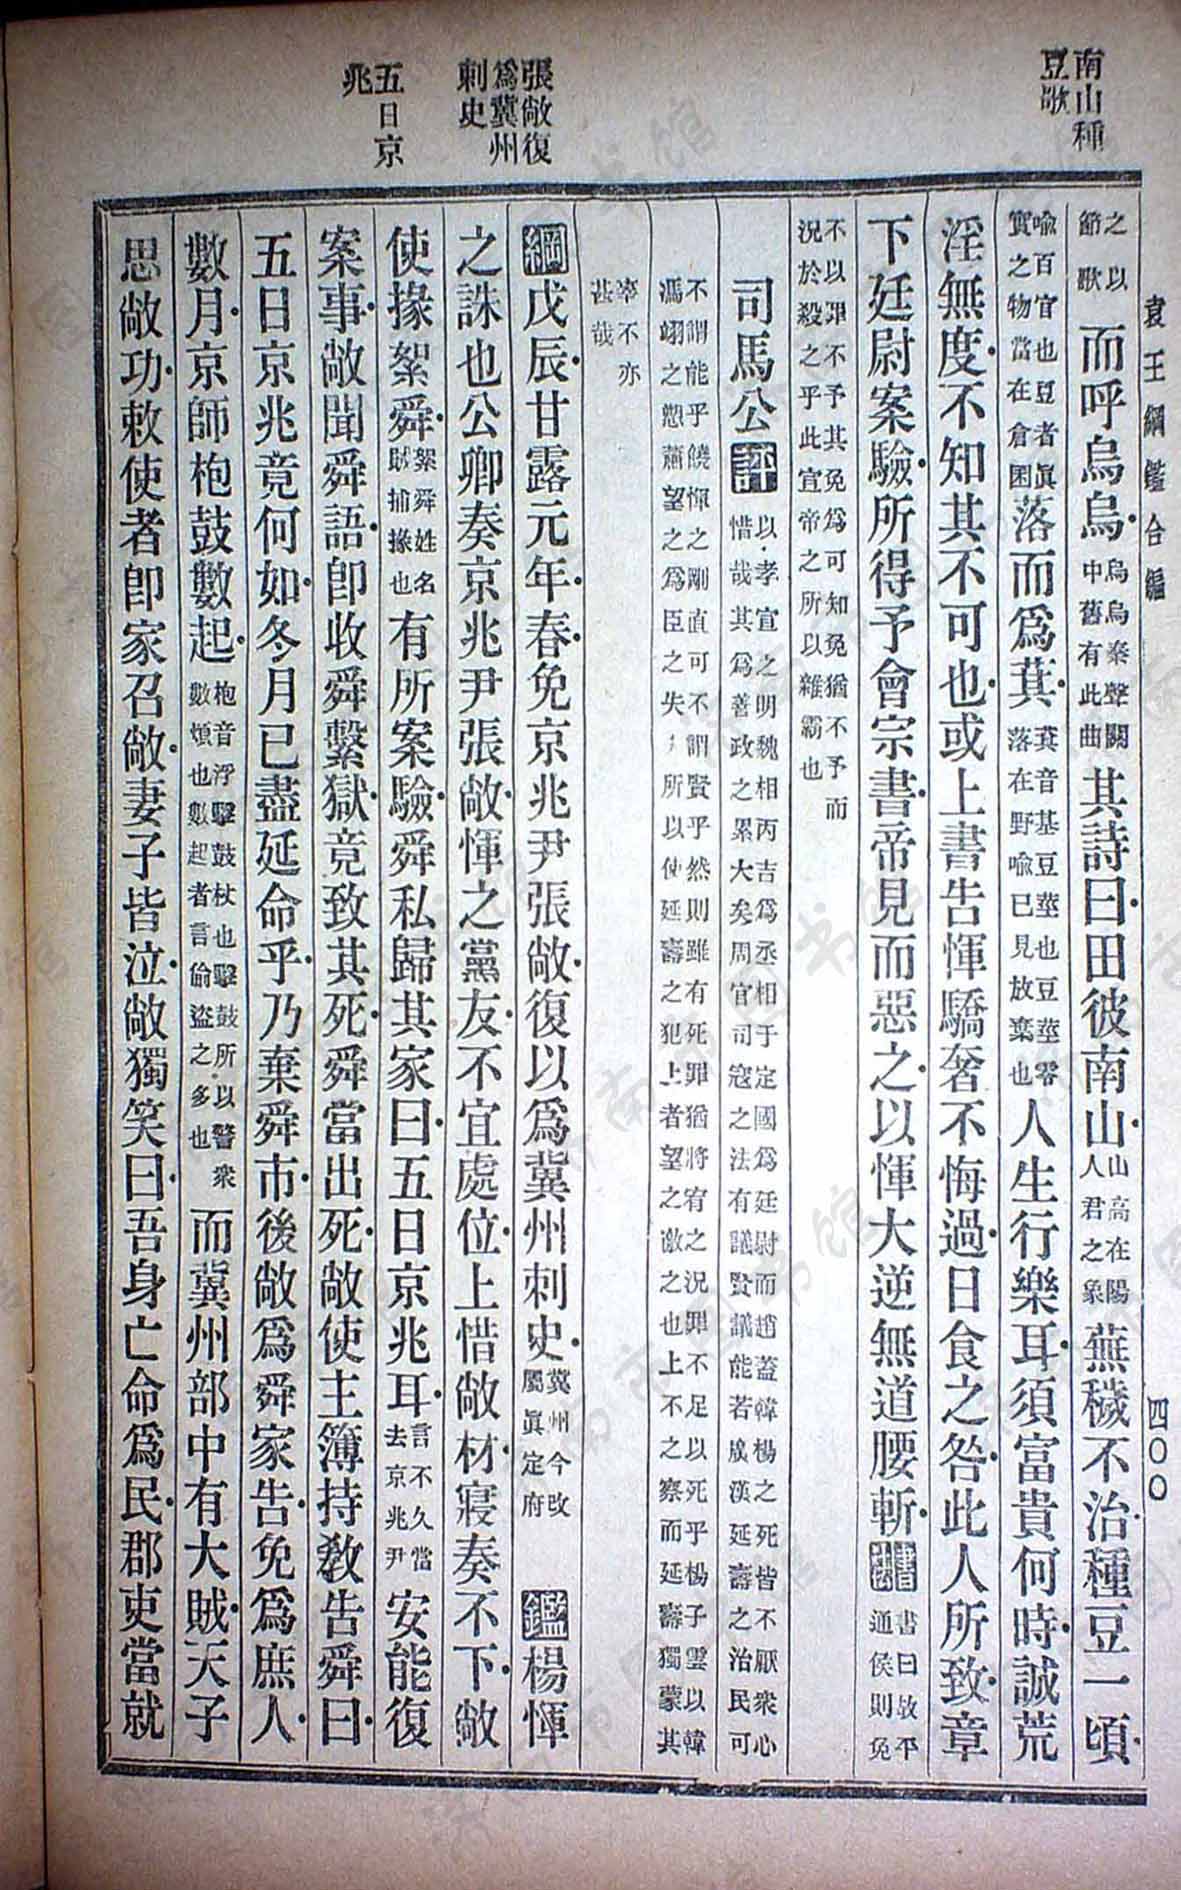 袁王綱鑑合編
四〇〇
南山種
豆歌
張敞復
爲冀州
刺史
五日京
兆
之以節歌而呼烏烏烏烏秦聲關中舊有此曲其詩曰田彼南山山高在陽人君之象蕪穢不治種豆一頃
喩百官也豆者眞實之物當在倉囷落而爲萁萁音基豆莖也豆莖零落在野喩已見放棄也人生行樂耳須富貴何時誠荒
淫無度不知其不可也或上書告惲驕奢不悔過日食之咎此人所致章
下廷尉案驗所得予會宗書帝見而惡之以惲大逆無道腰斬書書曰故平通侯則免
不以罪不予其免爲可知免猶不予而況於殺之乎此宣帝之所以雜霸也
司馬公評以孝宣之明魏相丙吉爲丞相于定國爲廷尉而趙蓋韓楊之死皆不厭衆心惜哉其爲善政之累大矣周官司寇之法有議賢議能若廣漢延壽之治民可
不謂能乎饒惲之剛直可不謂賢乎然則雖有死罪猶將宥之況罪不足以死乎楊子雲以韓馮翊之愬蕭望之爲臣之失所以使延壽之犯上者望之激之也上不之察而延壽獨蒙其
辜不亦甚哉
綱戊辰甘露元年春免京兆尹張敞復以爲冀州刺史冀州今改屬眞定府鑑楊惲
之誅也公卿奏京兆尹張敞惲之黨友不宜處位上惜敞材寢奏不下敞
使掾絮舜絮舜姓名賊捕掾也有所案驗舜私歸其家曰五日京兆耳言不久當去京兆尹安能復
案事敞聞舜語卽收舜繫獄竟致其死舜當出死敞使主簿持敎告舜曰
五日京兆竟何如冬月已盡延命乎乃棄舜市後敞爲舜家告免爲庶人
數月京師枹鼓數起枹音浮擊鼓杖也擊鼓所以警衆數煩也數起者言偷盜之多也而冀州部中有大賊天子
思敞功敕使者卽家召敞妻子皆泣敞獨笑曰吾身亡命爲民郡吏當就